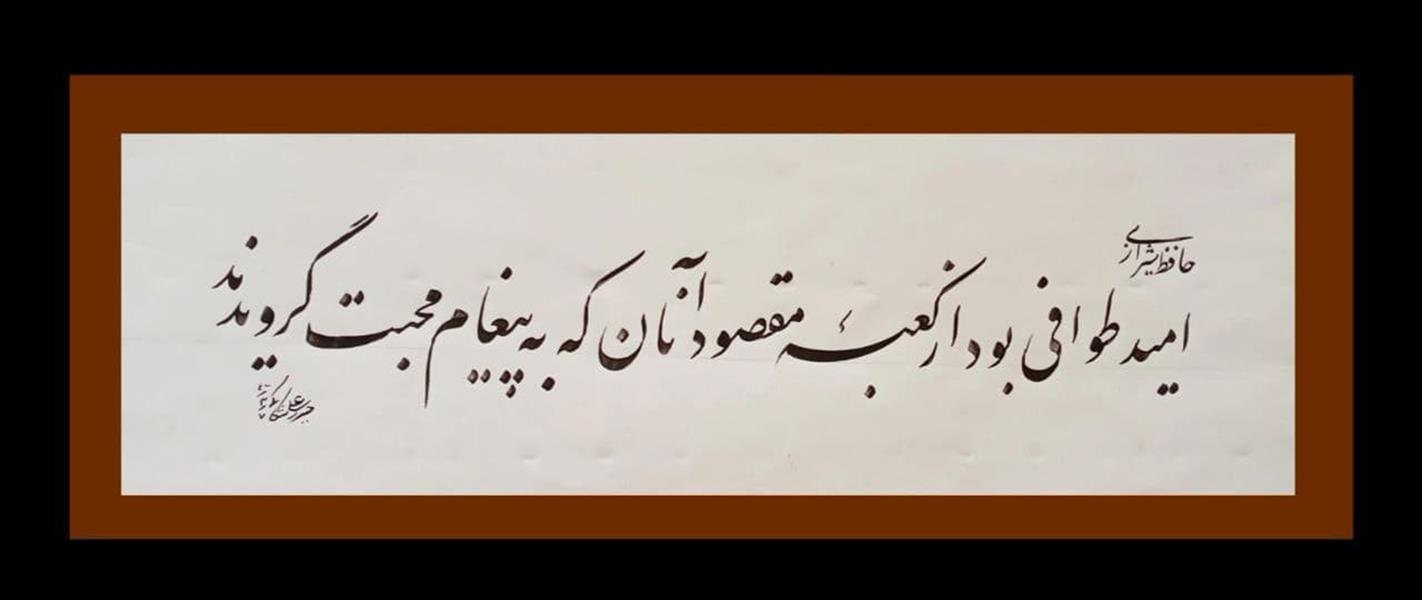 حافظ شیرازی
امید طوافی بود از کعبهٔ مقصود آنان که به پیغام محبت گرویدند